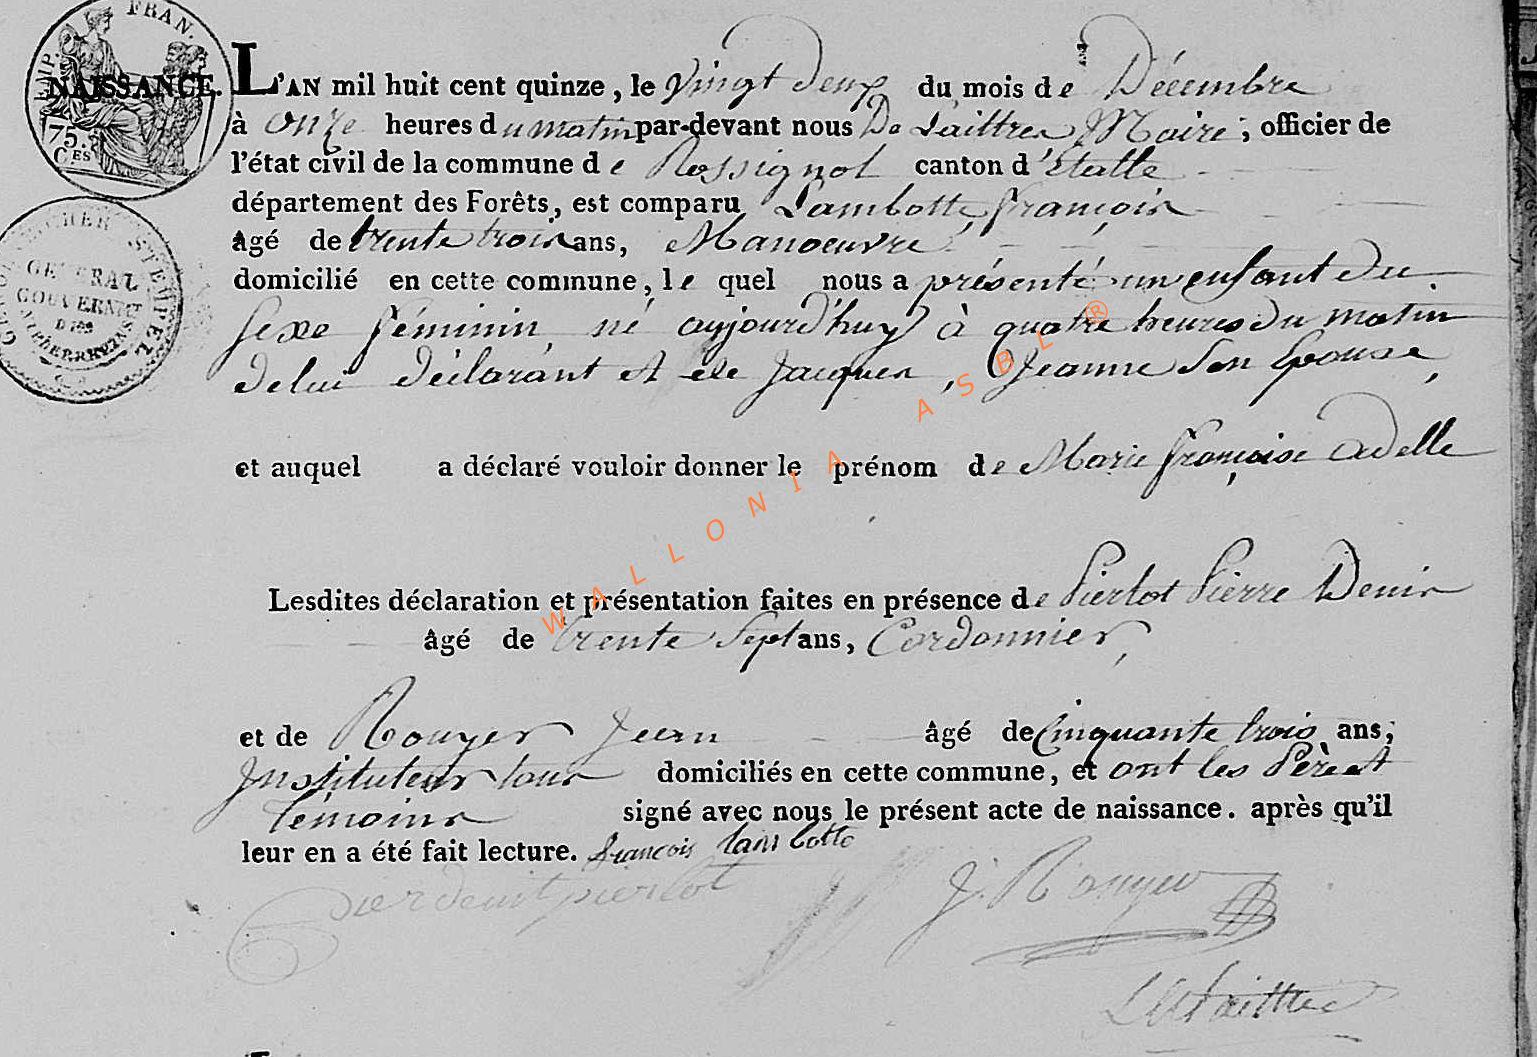 EMP. FRAN.
75.
CES
NAISSANCE. L'AN mil huit cent quinze, le vingt deux du mois de Décembre
à onze heures du matin par-devant nous De Laittres Maire, officier de
l'état civil de la commune de Rossignol canton d'Etalle
département des Forêts, est comparu Lambotte, françois
âgé de trente trois ans, Manoeuvre
domicilié en cette commune, le quel nous a présenté un enfant du
sexe féminin, né aujourd'huy à quatre heures du matin
de lui déclarant et de Jacques, Jeanne son Epouse,
et auquel a déclaré vouloir donner le prénom de Marie françoise adelle
Lesdites déclaration et présentation faites en présence de Pierlot Pierre Denis
âgé de trente sept ans, Cordonnier,
et de Rouyer Jean âgé de Cinquante trois ans,
Instituteur tous domiciliés en cette commune, et ont les Père et
témoins signé avec nous le présent acte de naissance. après qu'il
leur en a été fait lecture. françois lambotte
pierlot
J. Rouyer
GENERAL
GOUVERNEMT
STEMPEL
WALLONIA ASBL ®